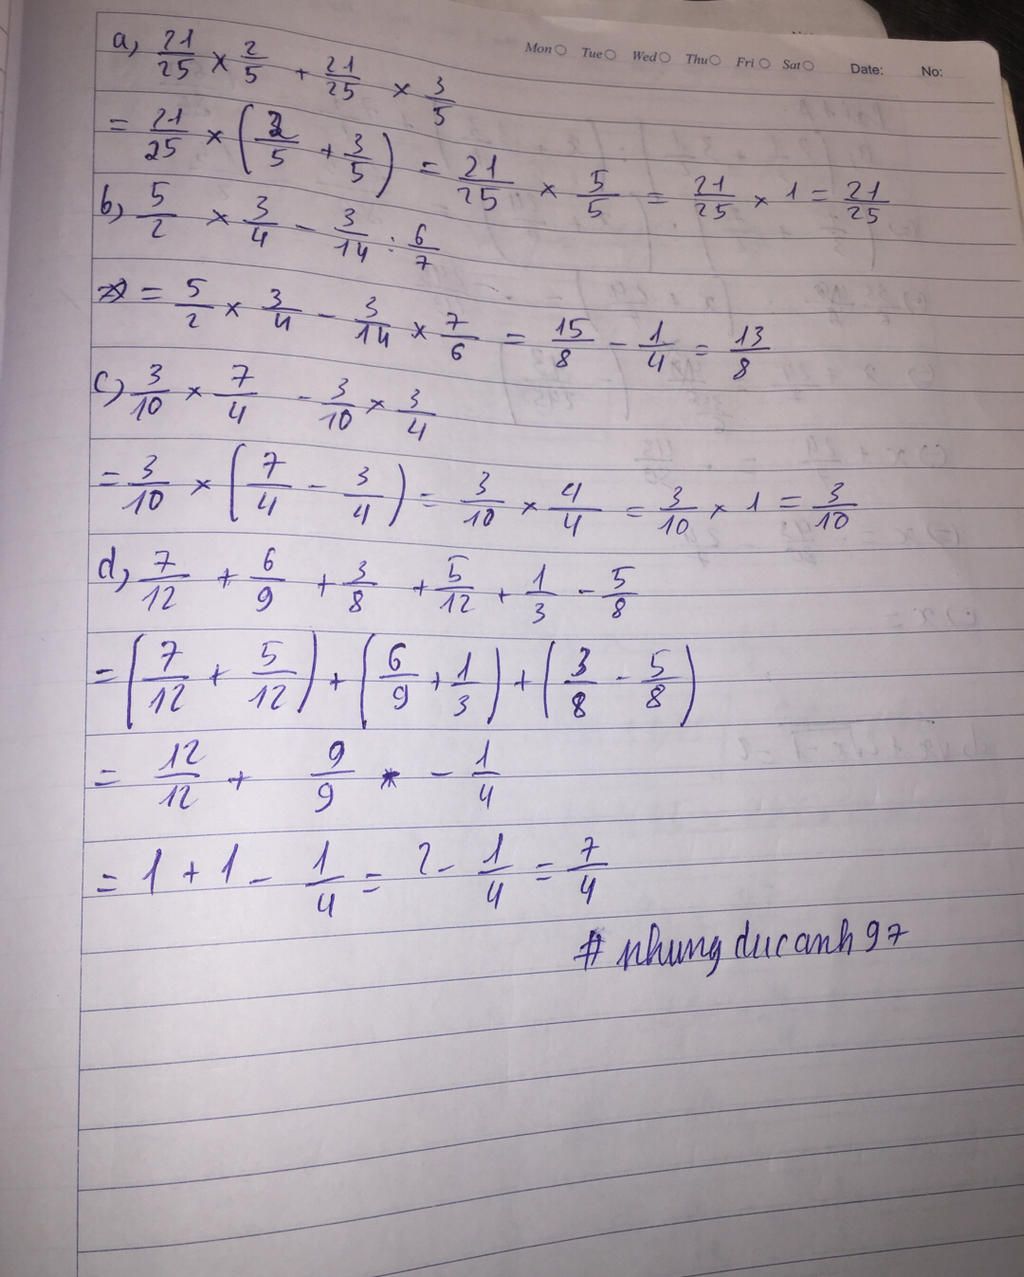 Mon Tue Wed Thu Fri Sat Date: No:
a, 21/25 × 2/5 + 21/25 × 3/5
= 21/25 × (2/5 + 3/5) = 21/25 × 5/5 = 21/25 × 1 = 21/25
b, 5/2 × 3/4 - 3/14 : 6/7
= 5/2 × 3/4 - 3/14 × 7/6 = 15/8 - 1/4 = 13/8
c, 3/10 × 7/4 - 3/10 × 3/4
= 3/10 × (7/4 - 3/4) = 3/10 × 4/4 = 3/10 × 1 = 3/10
d, 7/12 + 6/9 + 3/8 + 5/12 + 1/3 - 5/8
= (7/12 + 5/12) + (6/9 + 1/3) + (3/8 - 5/8)
= 12/12 + 9/9 - 1/4
= 1 + 1 - 1/4 = 2 - 1/4 = 7/4
# nhungducanh97